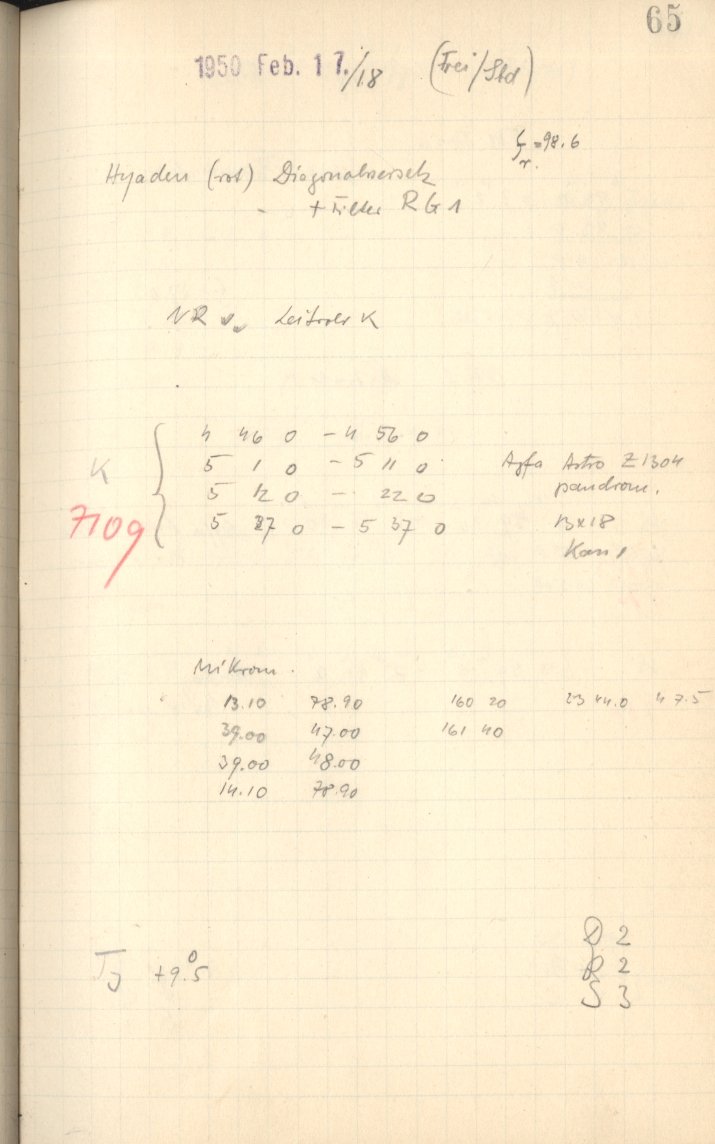 65
1950 Feb. 17./18 (Frei/Std)
fr. = 98.6
Hyaden (rot) Diagonalversetz
- + Filter RG1
NR Leitrohr K
4 46 0 - 4 56 0
K 5 1 0 - 5 11 0 Agfa Astro Z1304
5 12 0 - 22 0 panchrom.
7109 5 27 0 - 5 37 0 13x18
Mikrom.
13.10 78.90 160 20 23 44.0 47.5
39.00 47.00 161 40
39.00 48.00
14.10 78.90
D 2
TJ +9.°5 R 2
S 3